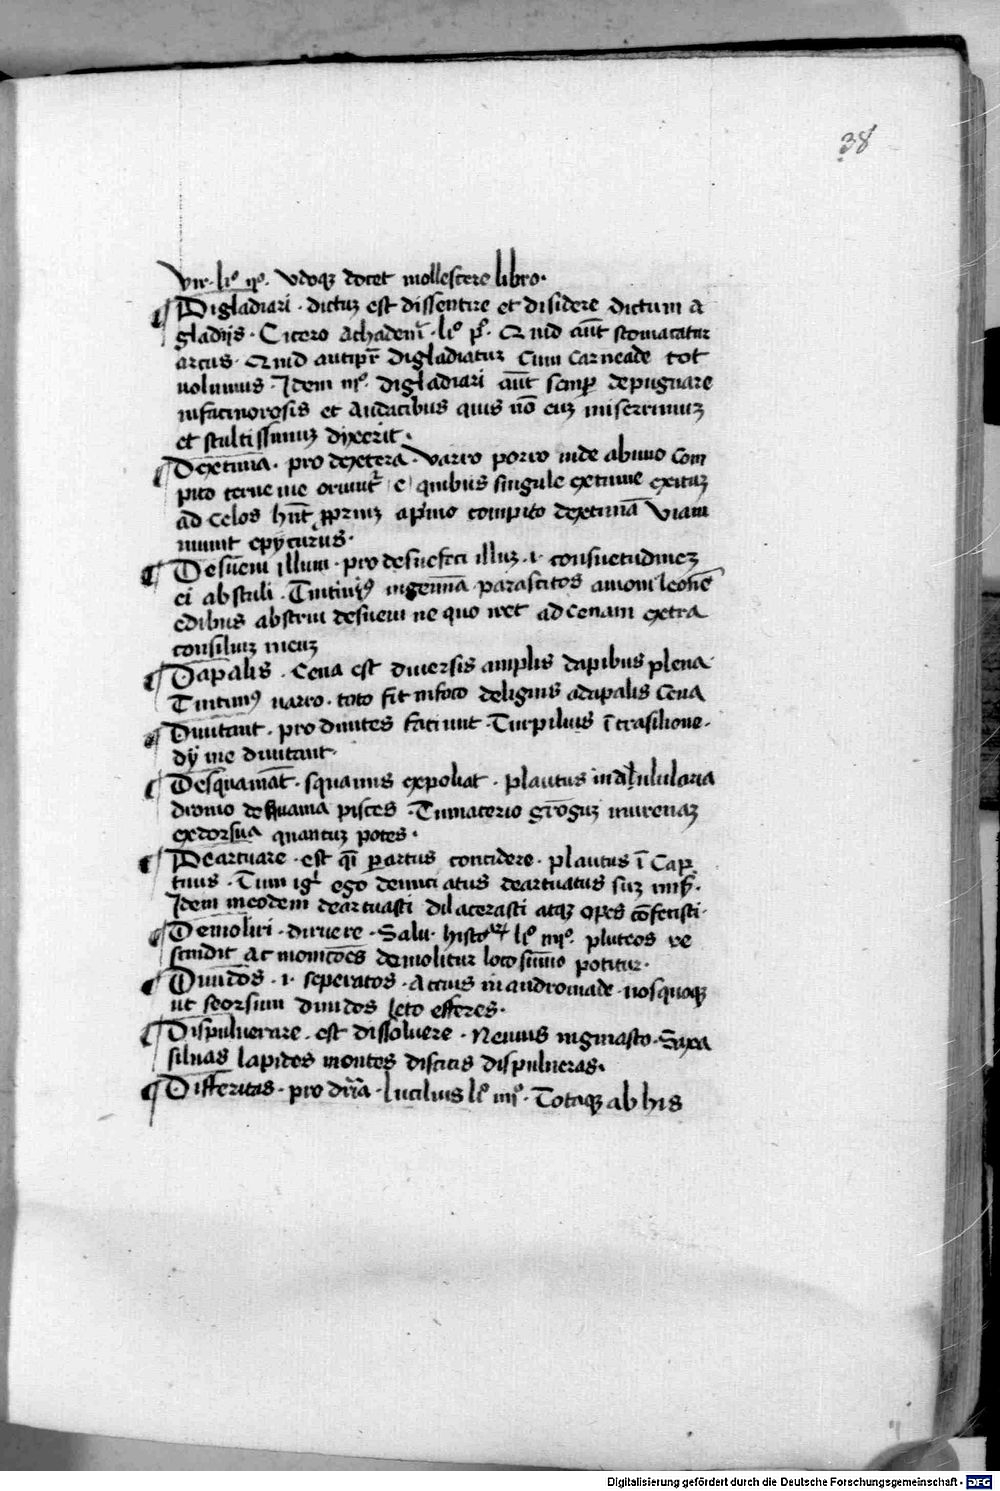 38
Vir. liº. IIº. Vdoqȝ docet mollescere libro.
¶ Digladiari. dictuȝ est dissentire et disidere dictum a
gladijs. Cicero Achadem̄. liº pº. Quid aūt stomacatur
arcus. Quid antipr̄ digladiatur Cum Carneade tot
uolumus. Idem IIIº. digladiari aūt semꝑ depugnare
infacinorosis et Audacibus quis nō euȝ miserrimuȝ
et stultissimuȝ dixerit.
¶ Dextima. pro dextera. Varro porro inde abuno Com
pito terne uie oriunt̄ e quibus singule extime exituȝ
ad Celos hn̄t ꝓprium aprimo compito dextimā Viam
munit epycurus.
¶ Desueui illum. pro desuefeci illuȝ .i. consuetudineȝ
ei abstuli. Titiniꝰ ingeminā parascitos amoui leonē
edibus abstrui desueui ne quo iret ad Cenam extra
consiliuȝ meuȝ
¶ Dapalis. Cena est diuersis amplis dapibus plena
Titiniꝰ uarro. toto fit infoco deliguis adapalis Cena
¶ Diuitant. pro diuites faciunt. Turpilius ī trasilione.
dij me diuitant.
¶ Desquamāt. squamis expoliat. Plautus in Aulularia
dromo desquama pisces. Tu macerio grōguȝ murenaȝ
exdorsua quantuȝ potes.
¶ Deartuare. est q̄i ꝑ artus concidere. Plautus ī Cap
tiuis. Tum igr̄ ego deunciatus deartuatus suȝ mis̄.
Idem in eodem deartuasti dilacerasti atqȝ opes cōfecisti.
¶ Demoliri. diruere. Salu. historiaꝝ liº IIIº. pluteos re
scindit Ac monicōes demolitur loco sūmo potitur.
¶ Diuidos .i. seperatos. Accius in andromade. uosquoqȝ
ut seorsum diuidos leto efferes.
¶ Dispuluerare. est dissoluere. Neuius in gimasto. Saxa
siluas lapides montes discitis dispulueras.
¶ Differitas. pro dr̄ia. Lucilius liº IIIIº. Totaqȝ ab his
Digitalisierung gefördert durch die Deutsche Forschungsgemeinschaft - DFG